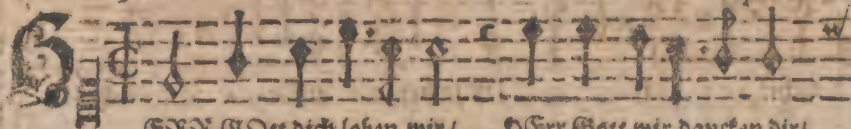 HERR GOtt dich loben wir/ HErr Gott wir dancken dir/